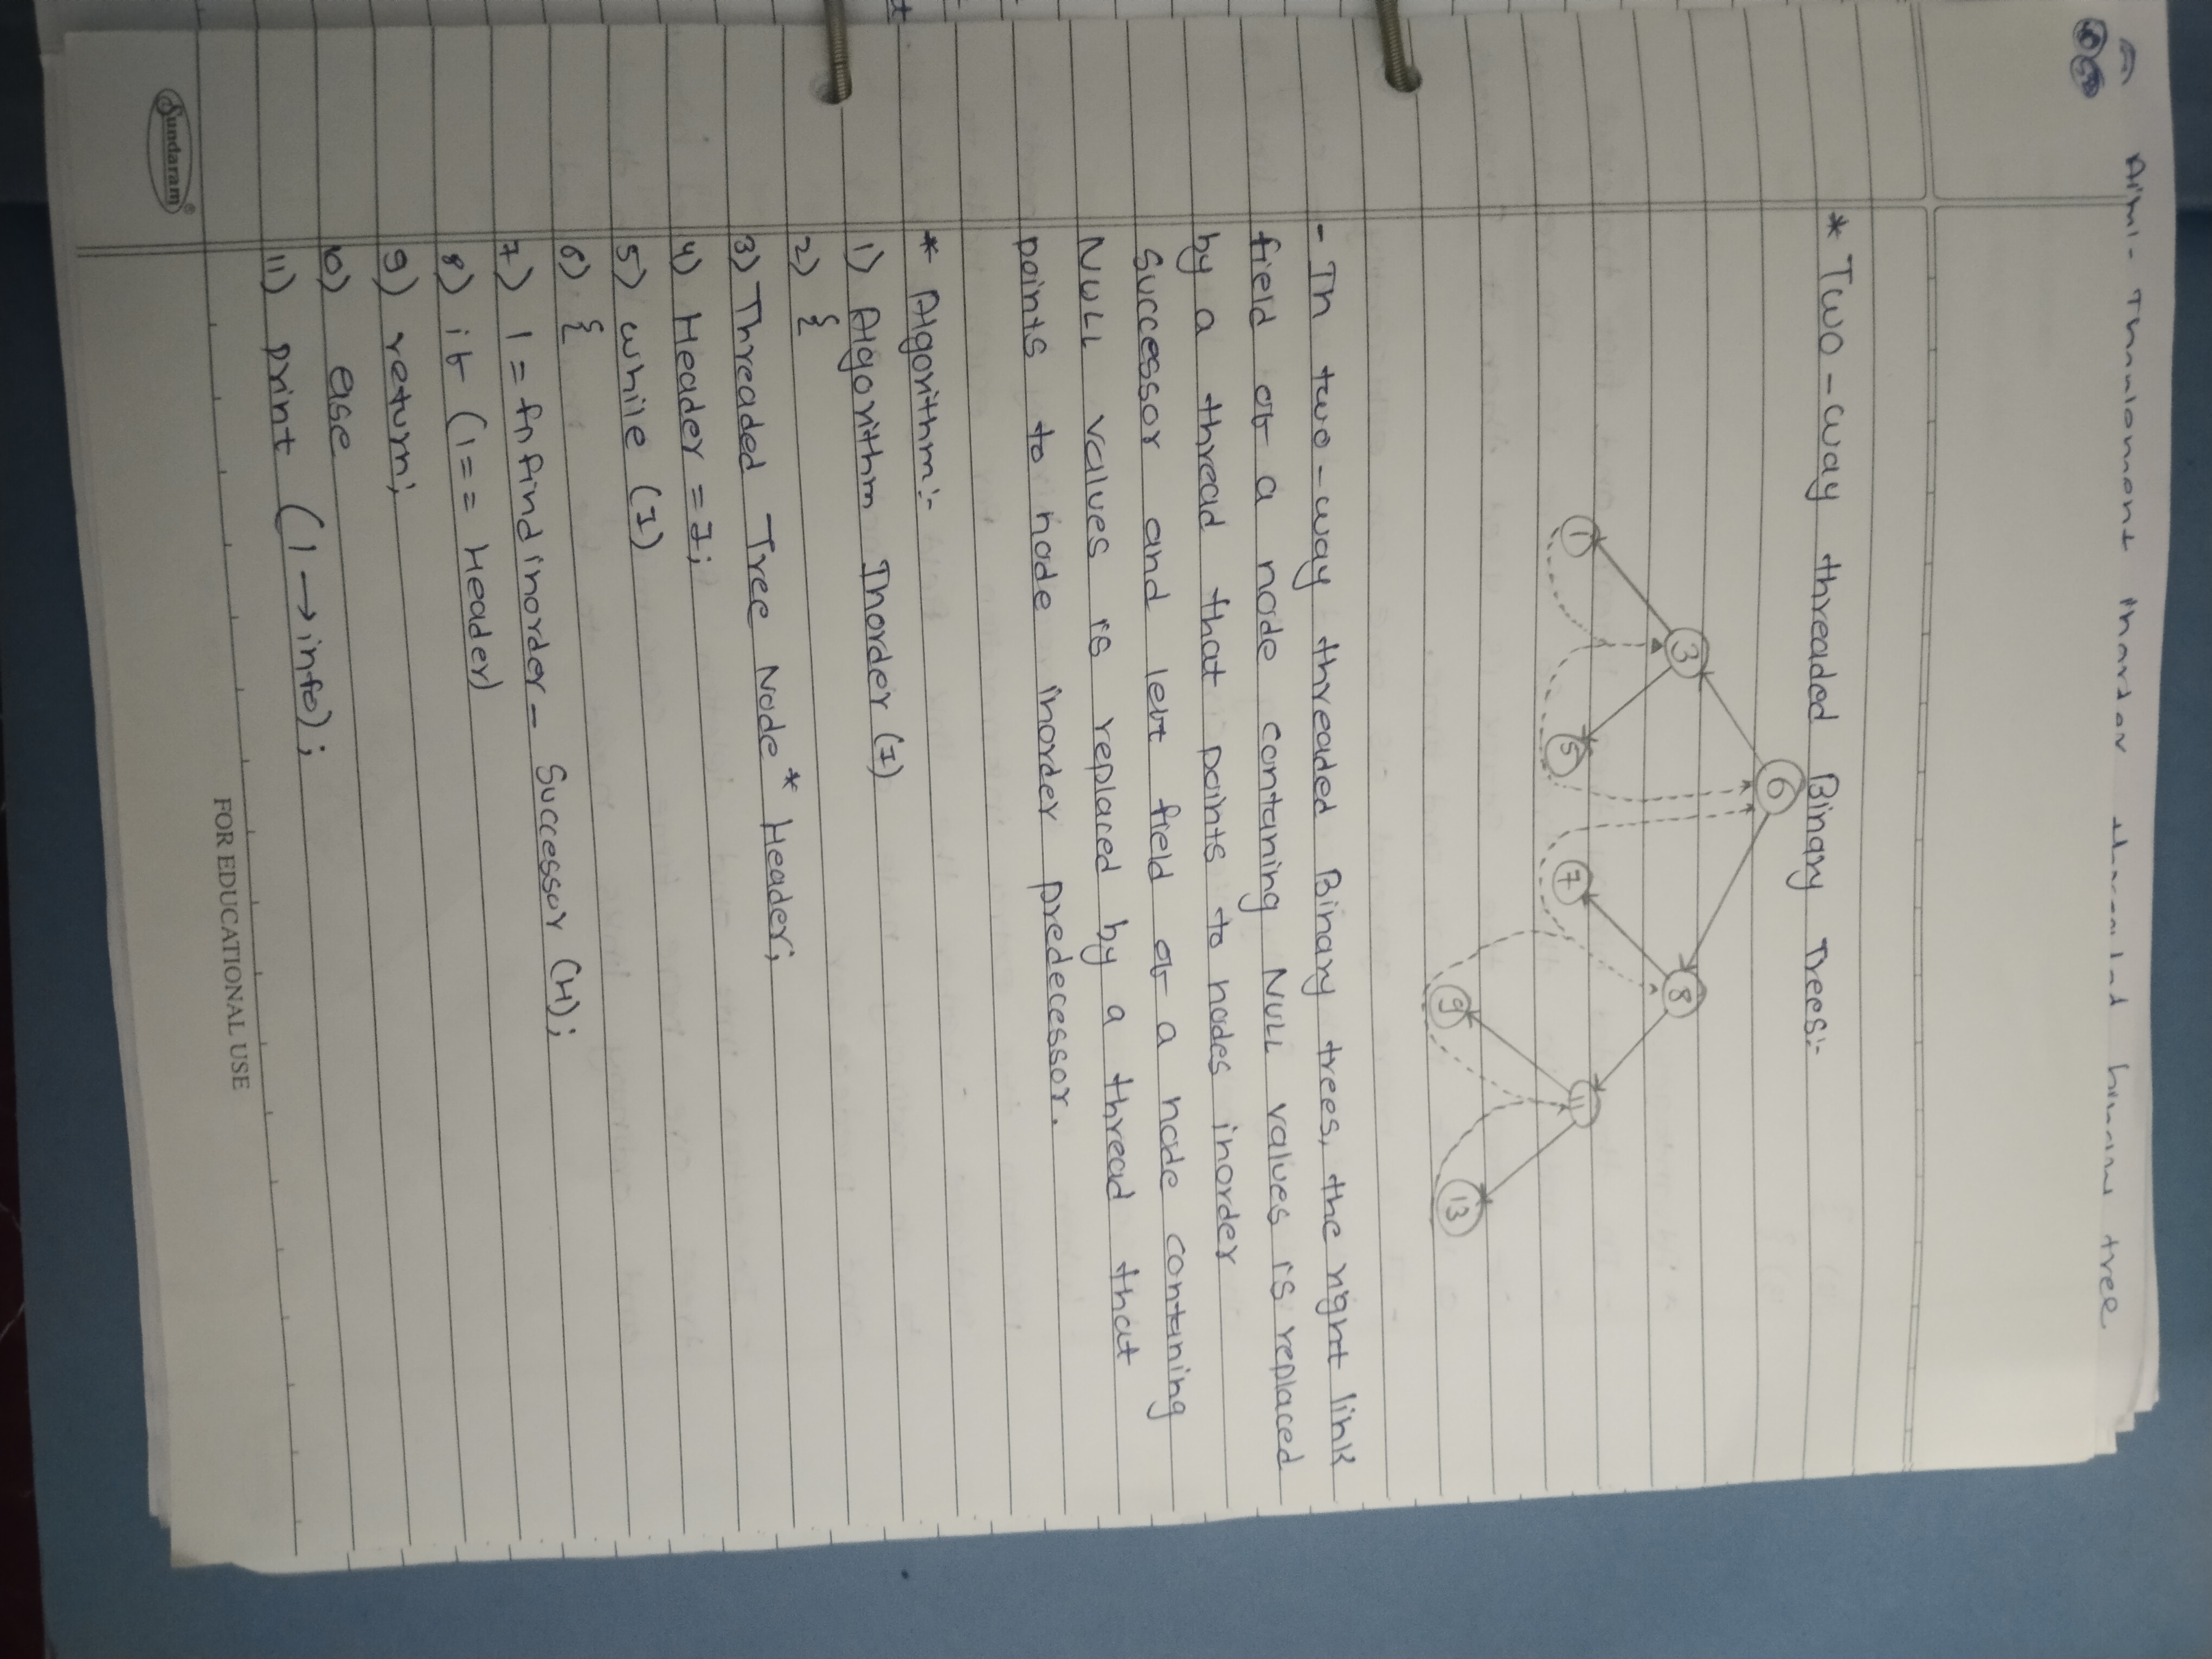 tree
* Two-way threaded Binary Trees:-
6
3 8
1 5 7 11
9 13
- In two-way threaded Binary trees, the right link
field of a node contaning NULL values is replaced
by a thread that points to nodes inorder
Successor and left field of a node contaning
NULL values is replaced by a thread that
points to node inorder predecessor.
* Algorithm:-
1) Algorithm Inorder (I)
2) {
3) Threaded Tree Node* Header;
4) Header = I;
5) while (I)
6) {
7) I = fnfindinorder_ Successor (H);
8) if (I == Header)
9) return;
10) else
11) print (I → info);
FOR EDUCATIONAL USE
Sundaram®